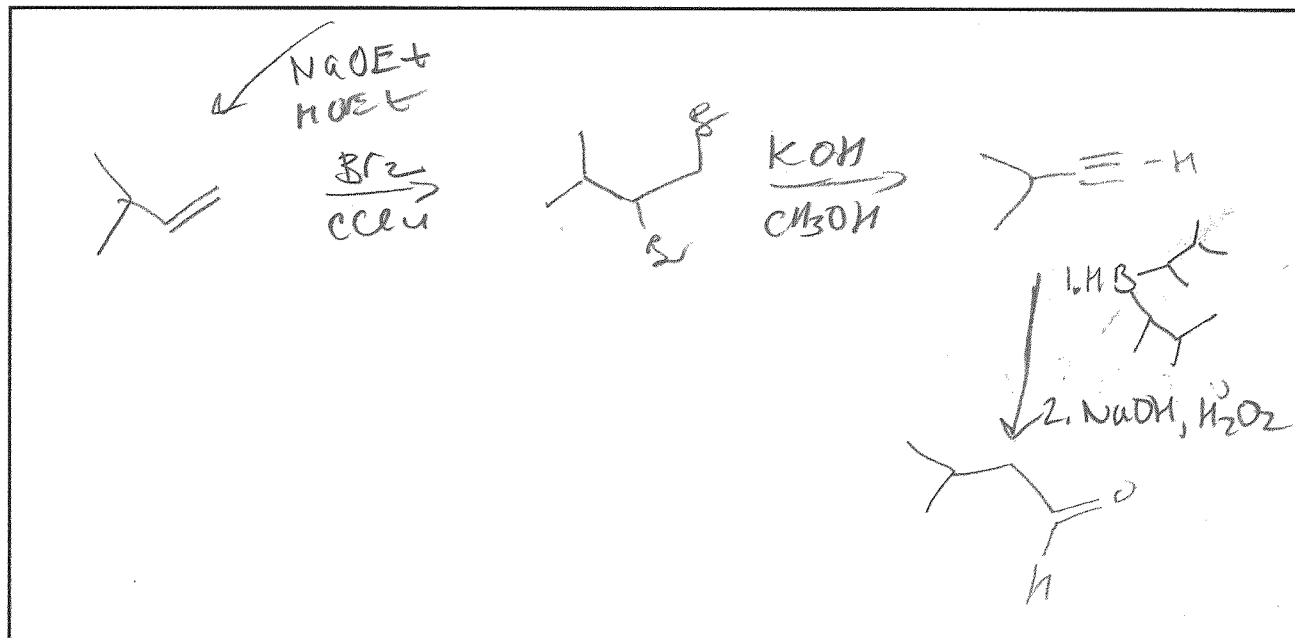 NaOEt
HOEt
Br2
CCl4
Br
Br
KOH
CH3OH
-H
1. HB
2. NaOH, H2O2
O
H